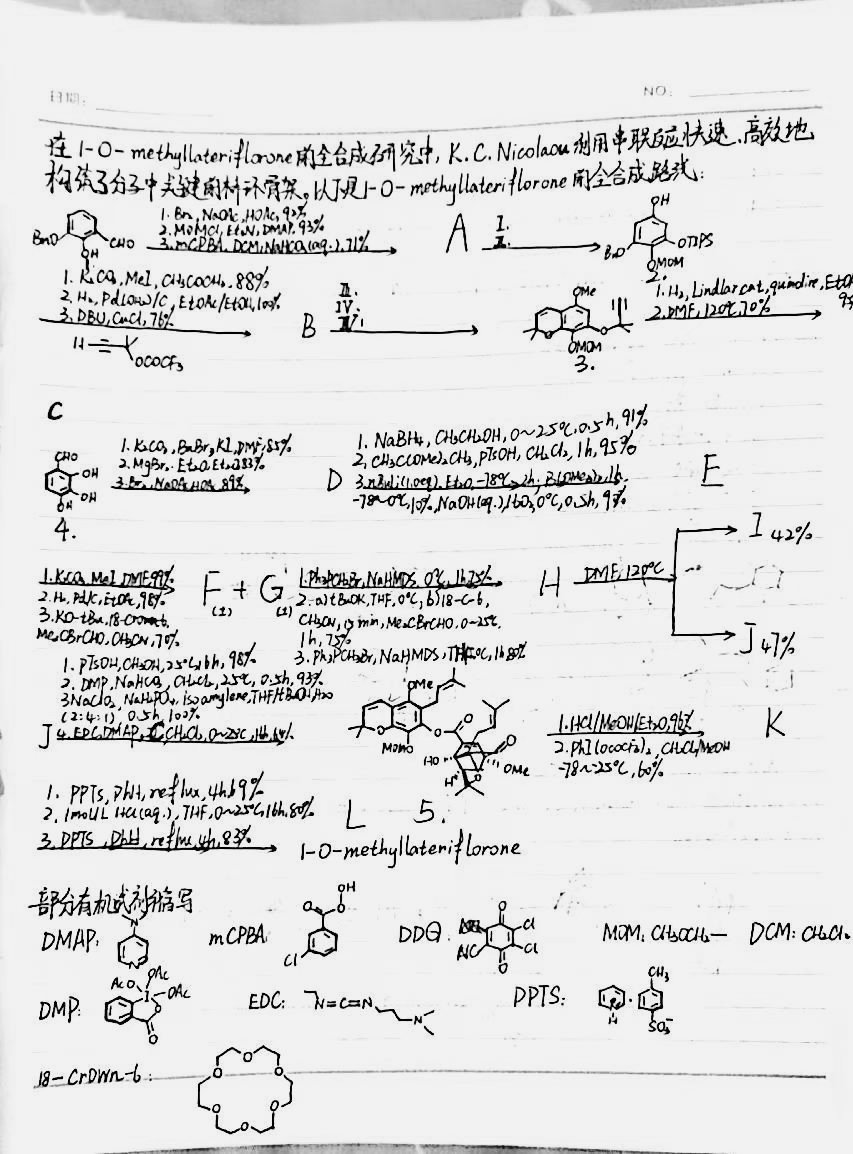 日期: NO:
在1-O-methyllateriflorone的全合成研究中, K.C. Nicolaou利用串联反应快速、高效地
构筑了分子中关键的环骨架。以下是1-O-methyllateriflorone的全合成路线:
1. Br₂, NaOAc, HOAc, 92%
2. MOMCl, Et₃N, DMAP, 93%
3. mCPBA, DCM, NaHCO₃(aq.), 71%
BnO CHO OH
A
I.
II.
OH BnO OTIPS OMOM
2.
1. K₂CO₃, MeI, CH₃COCH₃, 88%
2. H₂, Pd(10%)/C, EtOAc/EtOH, 100%
3. DBU, CuCl, 76%
H OCOCF₃
B
III.
IV.
OMe O O OMOM
3.
1. H₂, Lindlar cat, quinoline, EtOH
2. DMF, 120℃, 70%
C
CHO OH OH OH
4.
1. K₂CO₃, BnBr, KI, DMF, 85%
2. MgBr₂·Et₂O, Et₂O, 83%
3. Br₂, NaOAc, HOAc, 89%
D
1. NaBH₄, CH₃CH₂OH, 0~25℃, 0.5h, 91%
2. CH₃C(OMe)₂CH₃, pTsOH, CH₂Cl₂, 1h, 95%
3. nBuLi(1.0eq), Et₂O, -78℃, 2h; B(OMe)₃, 1h,
-78~0℃, 10% NaOH(aq.), H₂O₂, 0℃, 0.5h, 97%
E
1. K₂CO₃, MeI, DMF, 99%
2. H₂, Pd/C, EtOAc, 98%
3. KO-tBu, 18-Crown-6,
Me₂CBrCHO, CH₃CN, 70%
F + G
(1) (1)
1. Ph₃PCH₃Br, NaHMDS, 0℃, 1h, 75%
2. a) tBuOK, THF, 0℃, b) 18-C-6,
CH₃CN, 15 min, Me₂CBrCHO, 0~25℃,
1h, 75%
3. Ph₃PCH₃Br, NaHMDS, THF, 0℃, 1h, 80%
H
DMF, 120℃
I 42%
J 47%
1. pTsOH, CH₃OH, 25℃, 16h, 98%
2. DMP, NaHCO₃, CH₂Cl₂, 25℃, 0.5h, 93%
3. NaClO₂, NaH₂PO₄, isoamylene, THF/tBuOH/H₂O
(2:4:1), 0.5h, 100%
J 4. EDC, DMAP, C, CH₂Cl₂, 0~25℃, 1h, 64%
OMe O MOMO O O HO O OMe H
5.
1. HCl/MeOH/Et₂O, 96%
2. PhI(OCOCF₃)₂, CH₂Cl₂/MeOH
-78~-25℃, 60%
K
1. PPTs, PhH, reflux, 4h, 69%
2. 1mol/L HCl(aq.), THF, 0~25℃, 16h, 80%
L
3. DPTS, PhH, reflux, 4h, 83%
1-O-methyllateriflorone
部分有机试剂缩写
DMAP: N N
mCPBA O O OH Cl
DDQ: O NC NC Cl Cl O
MOM: CH₃OCH₂—
DCM: CH₂Cl₂
DMP: AcO OAc I OAc O O
EDC: N=C=N N
DPTS: N H CH₃ SO₃⁻
18-Crown-6: O O O O O O